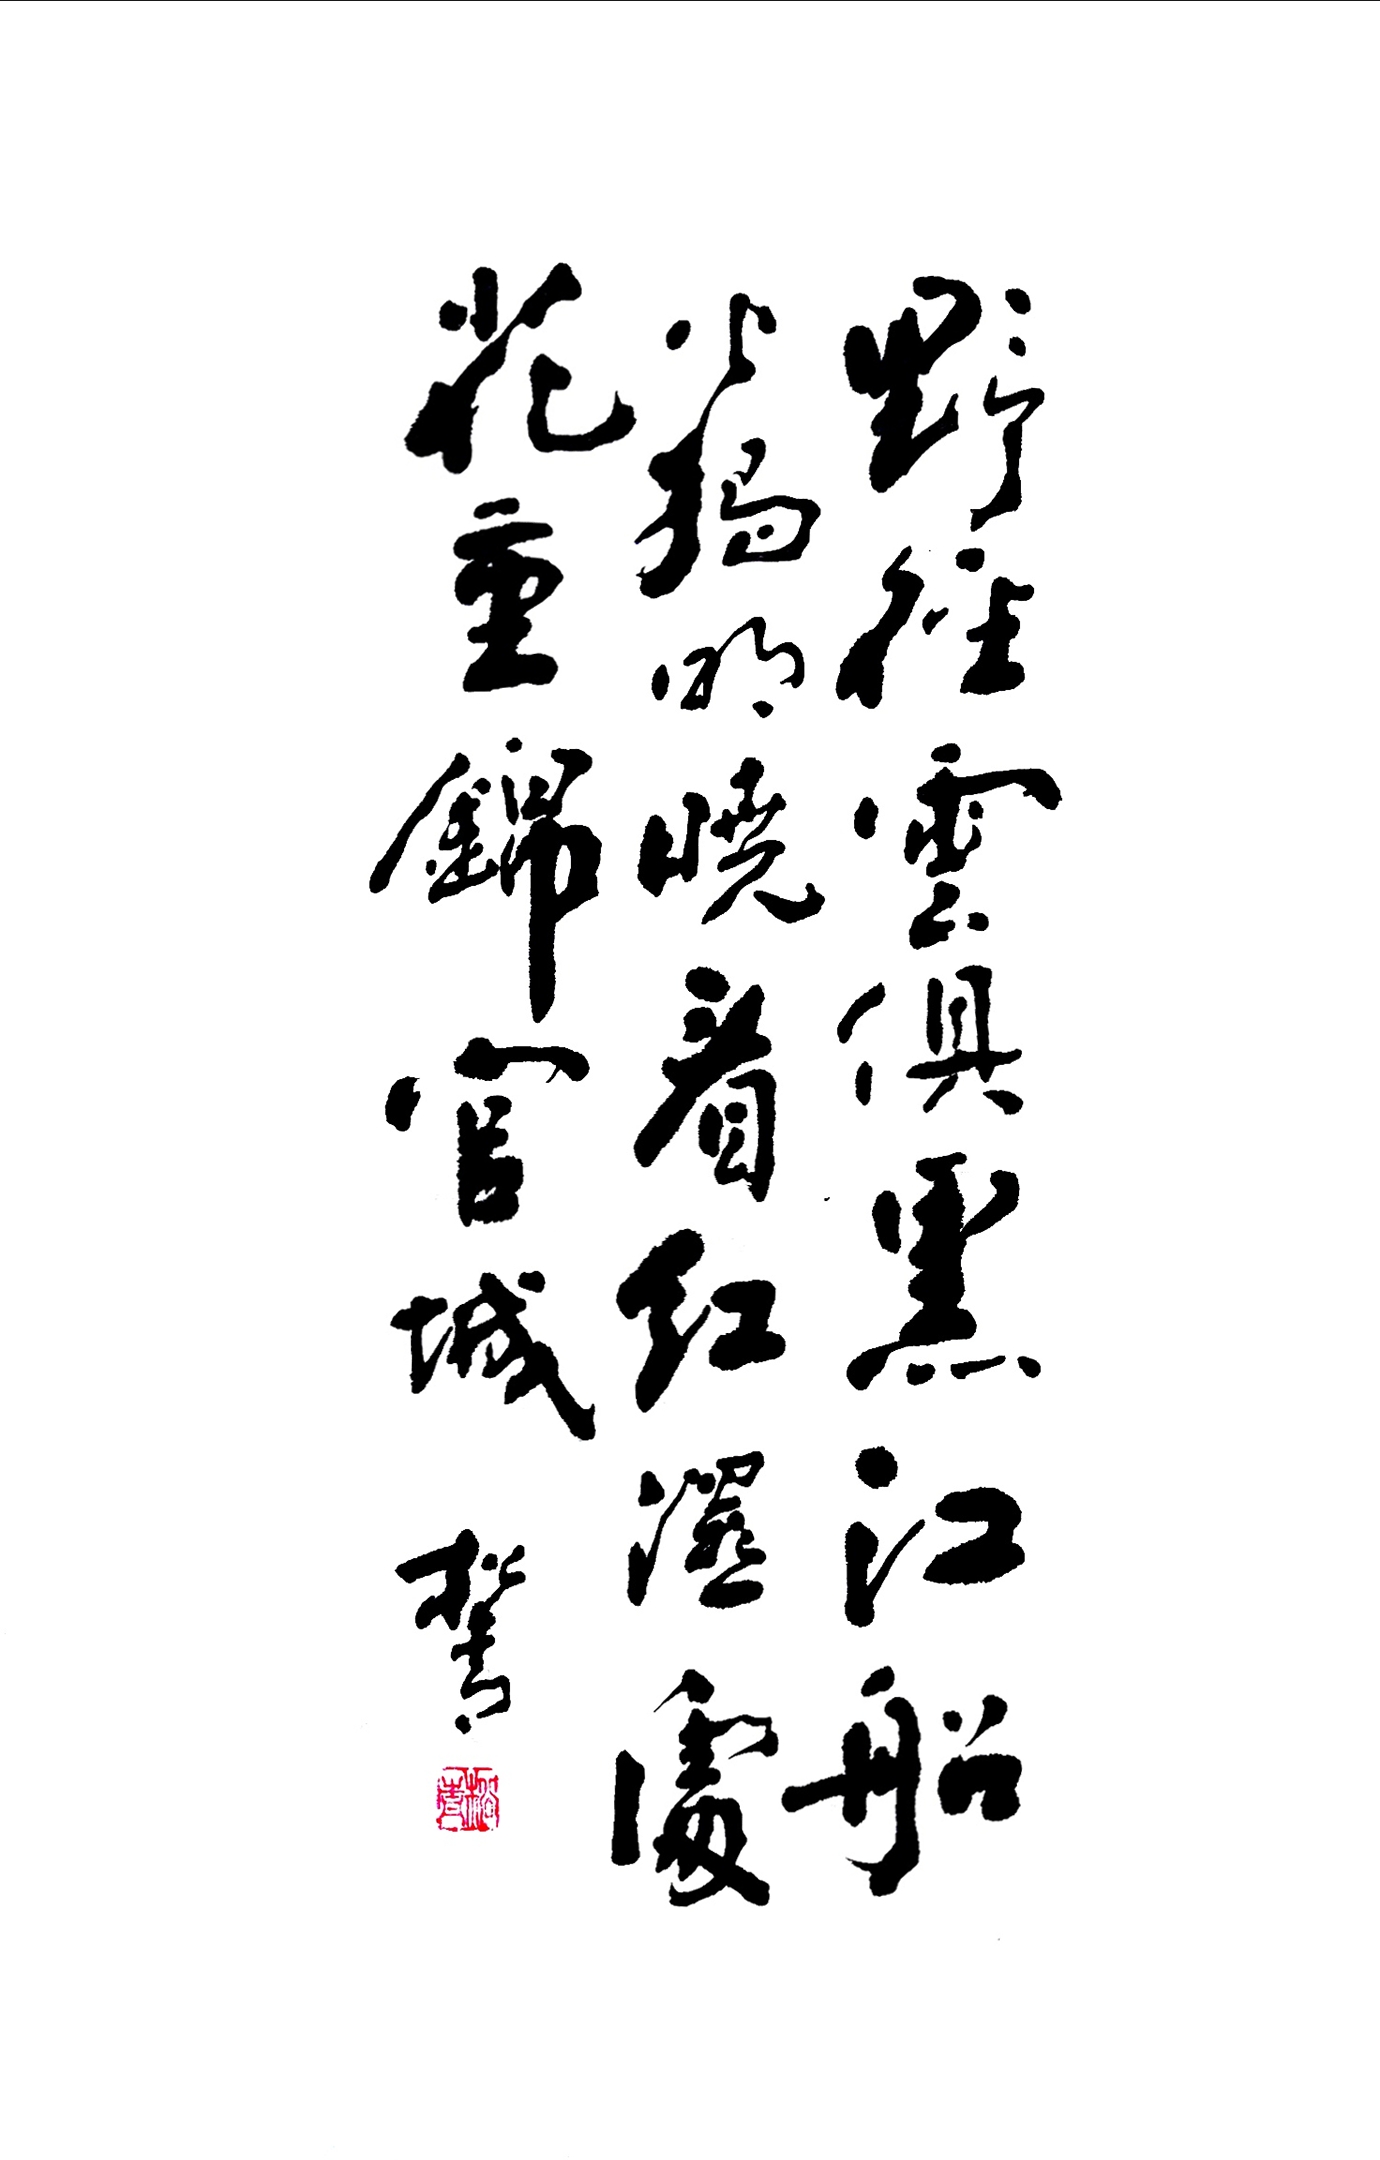 野徑雲俱黑江船
火獨明曉看紅濕處
花重錦官城